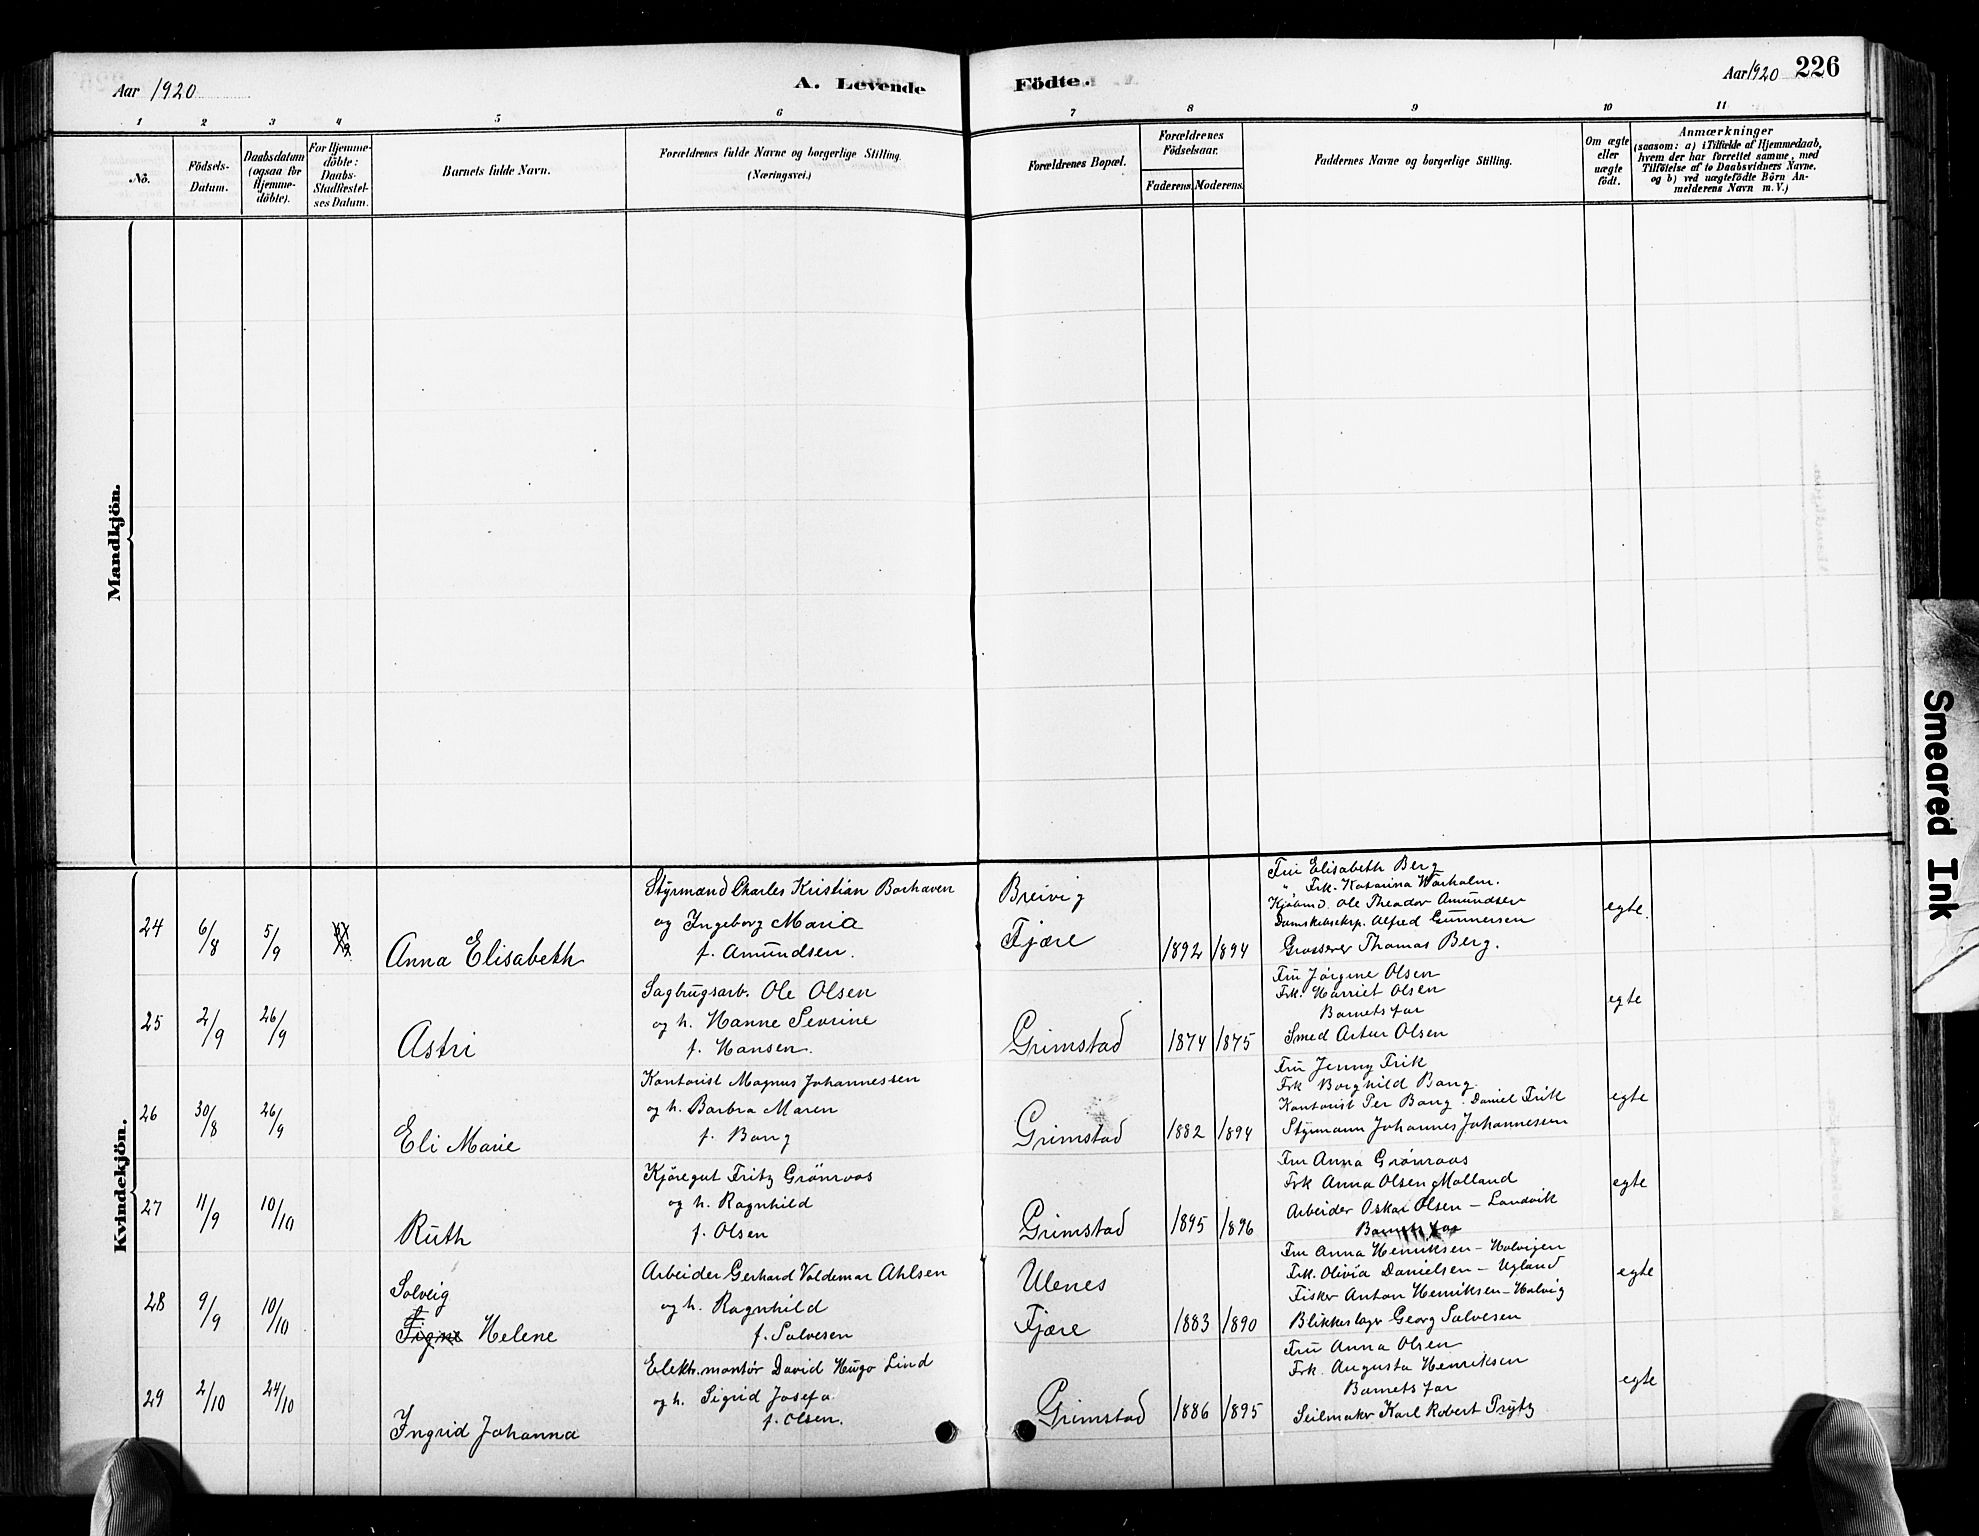 Aar 1920
A. Levende
Födte.
Aar 1920 226
1 2 3 4 5 6 7 8 9 10 11
No.
Födsels-
Datum.
Daabsdatum
(ogsaa for
Hjemme-
döbte).
For Hjemme-
döbte:
Daabs-
Stadfæstel-
ses Datum.
Barnets fulde Navn.
Forældrenes fulde Navne og borgerlige Stilling.
(Næringsvei.)
Forældrenes Bopæl.
Forældrenes
Födselsaar.
Faderens. Moderens.
Faddernes Navne og borgerlige Stilling.
Om ægte
eller
uægte
födt.
Anmærkninger
(saasom: a) i Tilfælde af Hjemmedaab,
hvem der har forrettet samme, med
Tilföielse af to Daabsvidners Navne.
og b) ved uægtefödte Börn An-
melderens Navn m. V.)
Mandkjön.
Kvindekjön.
24 6/8 5/9
Anna Elisabeth
Styrmand Charles Kristian Barhaven
og Ingeborg Maria
f. Amundsen.
Breivig
Fjære
1892 1894
Fru Elisabeth Berg
" Frk. Katarina Warholm.
Kjöbmd. Ole Theodor Amundsen
Damskibseksp. Alfred Gunnersen
Grosserer Thomas Berg.
egte.
25 2/9 26/9
Astri
Sagbrugsarb. Ole Olsen
og h. Hanne Sevrine
f. Hansen.
Grimstad
1874 1875
Fru Jørgine Olsen
Frk. Harriet Olsen
Barnets far
Smed Artur Olsen
egte
26 30/8 26/9
Eli Marie
Kontorist Magnus Johannessen
og h. Barbra Maren
f. Bang
Grimstad
1882 1894
Fru Jenny Frik
Frk Borghild Bang.
Kontorist Per Bang. Daniel Frik
Styrmann Johannes Johannesen
egte
27 11/9 10/10
Ruth
Kjöregut Fritz Grönroos
og h. Ragnhild
f. Olsen
Grimstad
1895 1896
Fru Anna Grönroos
Frk Anna Olsen Molland
Arbeider Oskar Olsen - Landvik
Barnets far
egte
28 9/9 10/10
Solveig
Signe Helene
Arbeider Gerhard Valdemar Ahlsen
og h. Ragnhild
f. Salvesen
Ulenes
Fjære
1883 1890
Fru Anna Henriksen - Holvigen
Frk. Olivia Danielsen - Ugland
Fisker Anton Henriksen - Holvig
Blikkeslager Georg Salvesen
egte
29 2/10 24/10
Ingrid Johanna
Elektr. montör David Hugo Lind
og h. Sigrid Josefa
f. Olsen.
Grimstad
1886 1895
Fru Anna Olsen
Frk. Augusta Henriksen
Barnets far
Seilmaker Karl Robert Trytz
egte
Smeared Ink